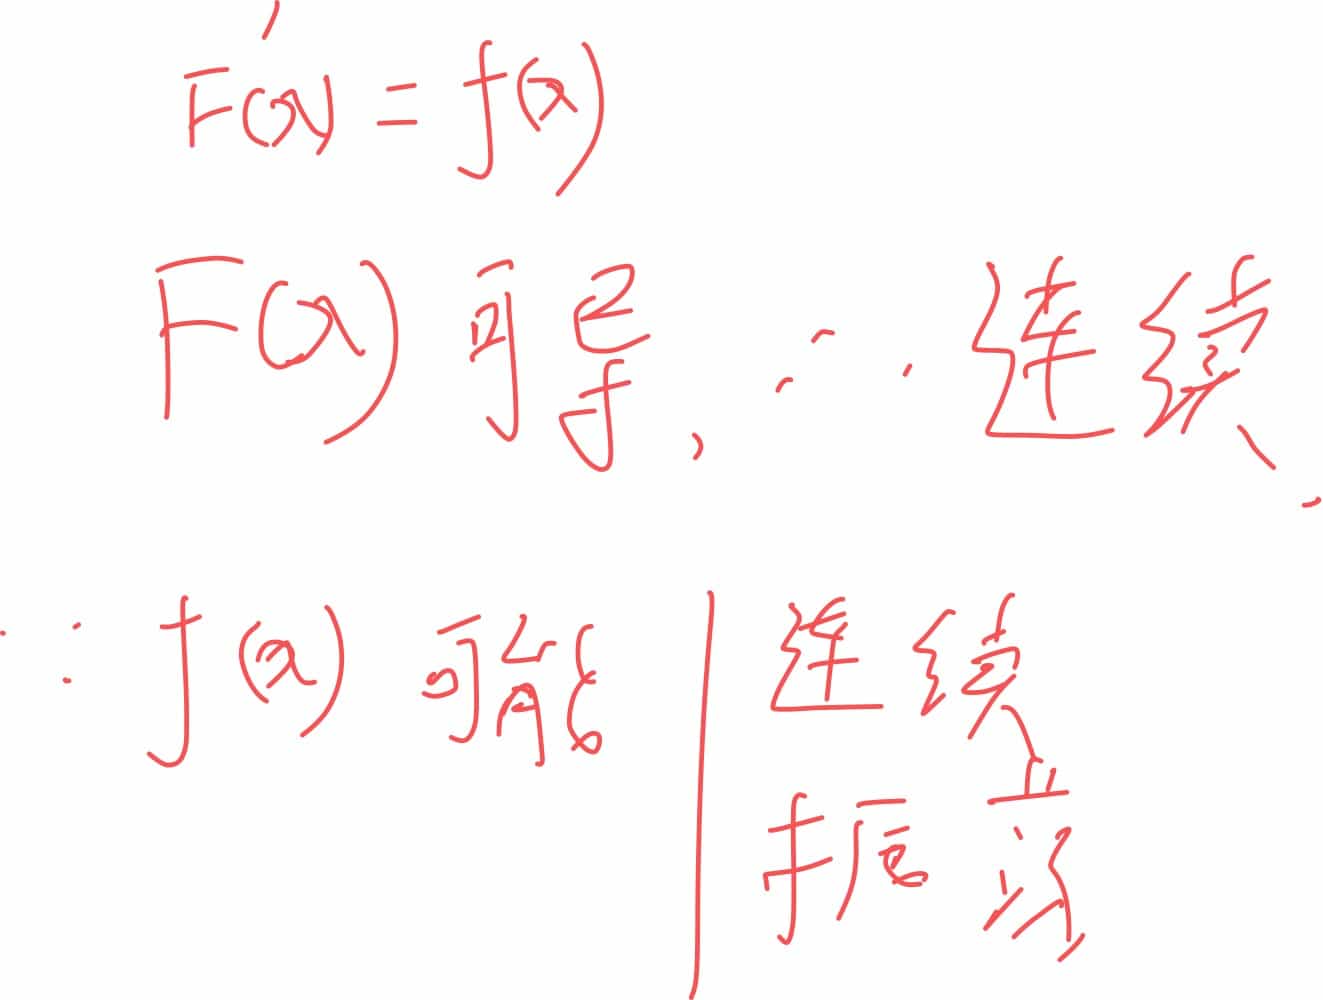 F'(x) = f(x)
F(x) 可导, ∴ 连续.
∵ f(x) 可能 | 连续
振荡